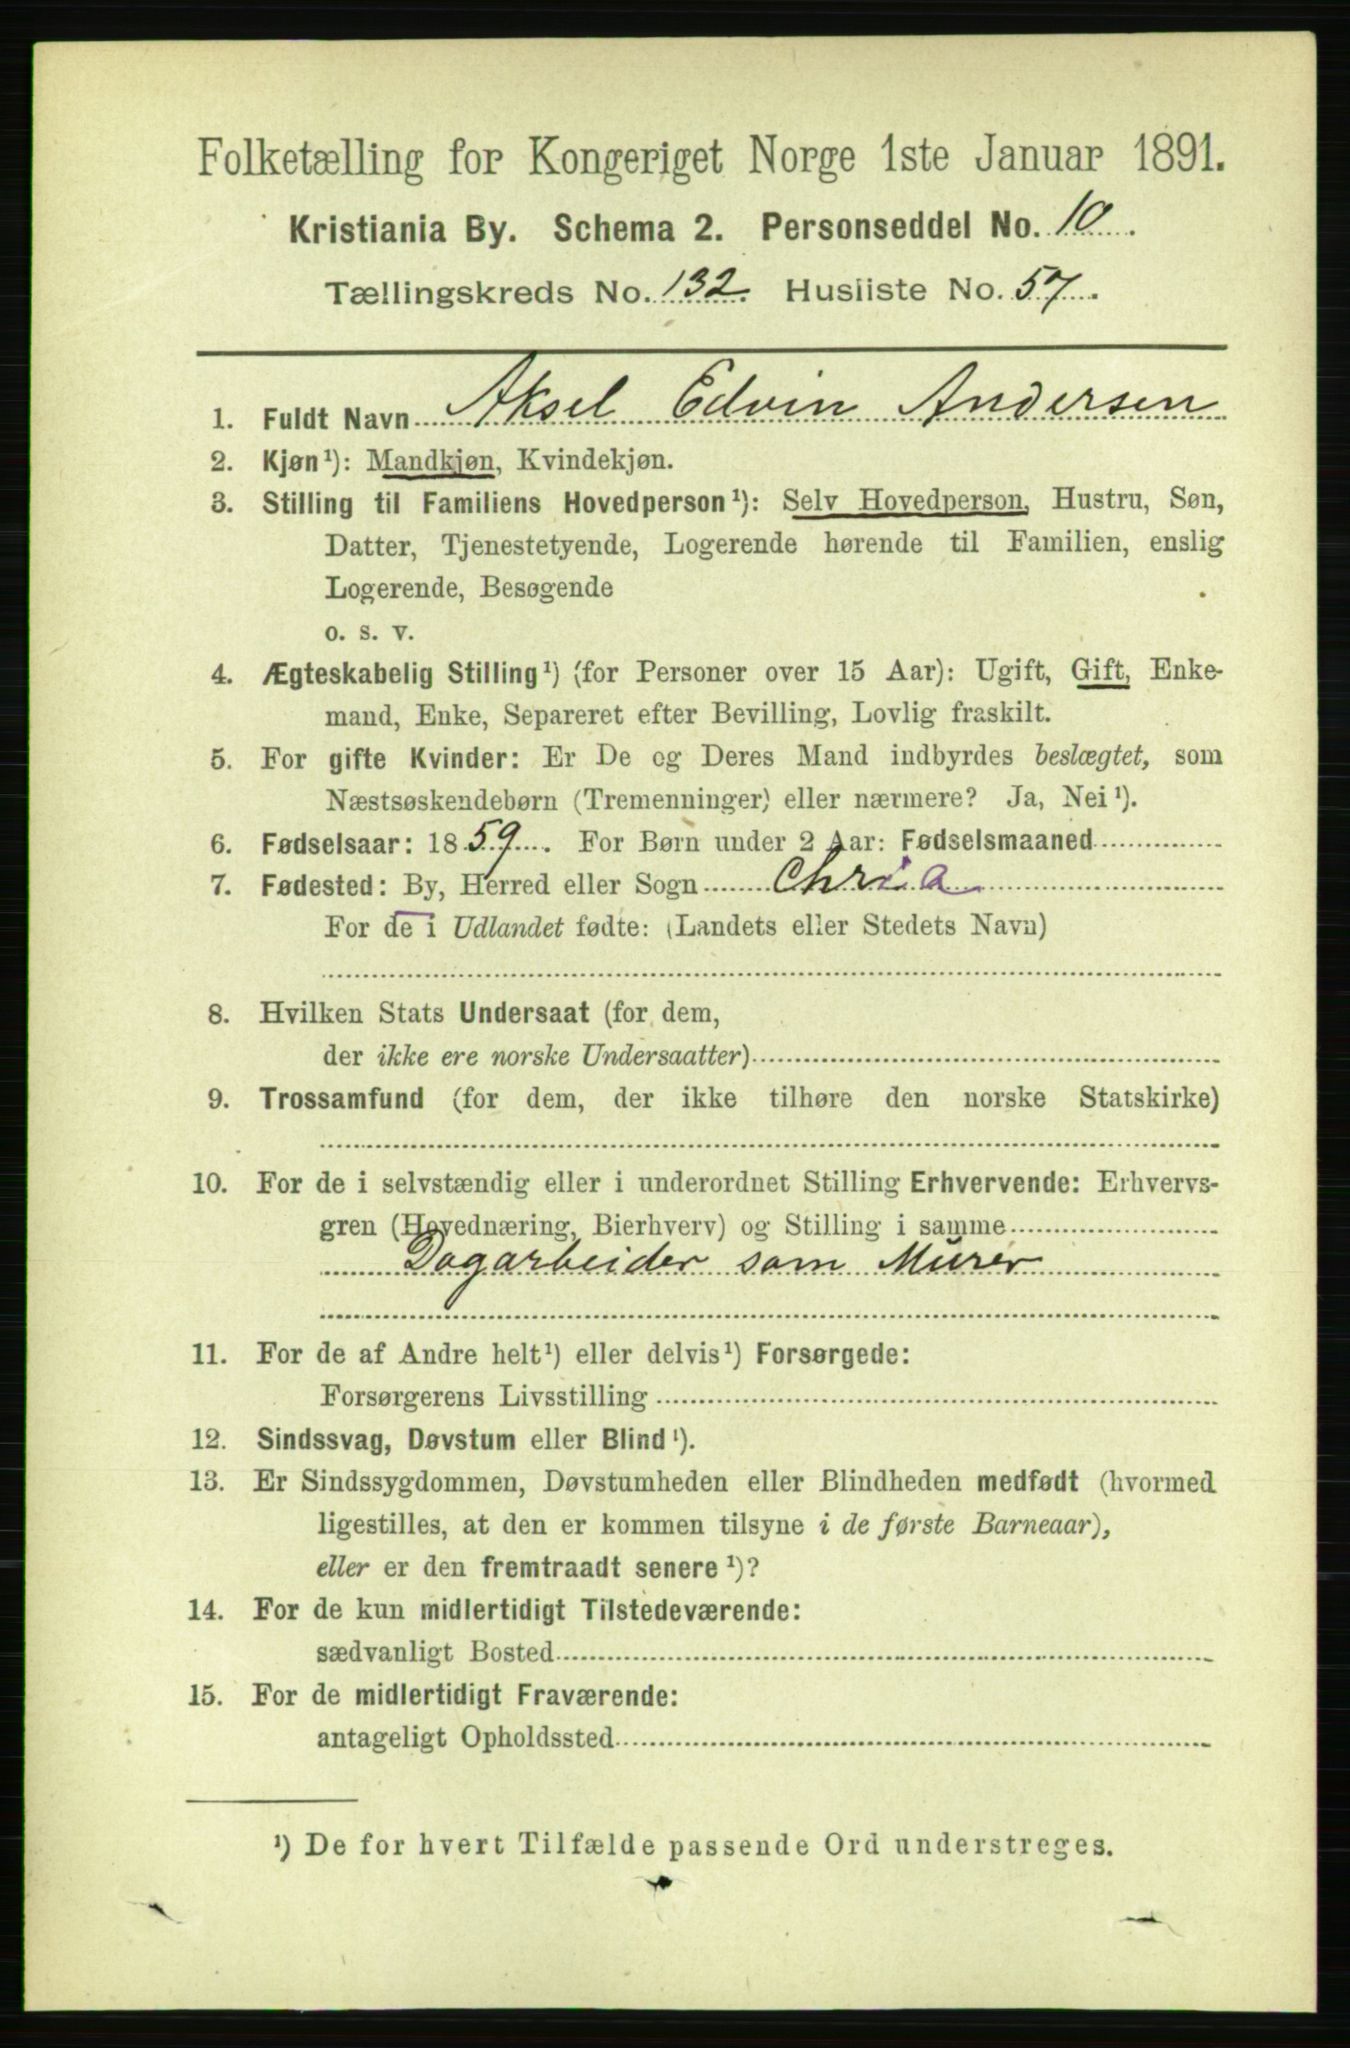 Folketælling for Kongeriget Norge 1ste Januar 1891.
Kristiania By. Schema 2. Personseddel No. 10.
Tællingskreds No. 132. Husliste No. 57.
1. Fuldt Navn Aksel Edvin Andersen
2. Kjøn¹): Mandkjøn, Kvindekjøn.
3. Stilling til Familiens Hovedperson¹): Selv Hovedperson, Hustru, Søn,
Datter, Tjenestetyende, Logerende hørende til Familien, enslig
Logerende, Besøgende
o. s. v.
4. Ægteskabelig Stilling¹) (for Personer over 15 Aar): Ugift, Gift, Enke-
mand, Enke, Separeret efter Bevilling, Lovlig fraskilt.
5. For gifte Kvinder: Er De og Deres Mand indbyrdes beslægtet, som
Næstsøskendebørn (Tremenninger) eller nærmere? Ja, Nei¹).
6. Fødselsaar: 1859. For Børn under 2 Aar: Fødselsmaaned
7. Fødested: By, Herred eller Sogn Chria
For de i Udlandet fødte: (Landets eller Stedets Navn)
8. Hvilken Stats Undersaat (for dem,
der ikke ere norske Undersaatter)
9. Trossamfund (for dem, der ikke tilhøre den norske Statskirke)
10. For de i selvstændig eller i underordnet Stilling Erhvervende: Erhvervs-
gren (Hovednæring, Bierhverv) og Stilling i samme
Dagarbeider som Murer
11. For de af Andre helt¹) eller delvis¹) Forsørgede:
Forsørgerens Livsstilling
12. Sindssvag, Døvstum eller Blind¹).
13. Er Sindssygdommen, Døvstumheden eller Blindheden medfødt (hvormed
ligestilles, at den er kommen tilsyne i de første Barneaar),
eller er den fremtraadt senere¹)?
14. For de kun midlertidigt Tilstedeværende:
sædvanligt Bosted
15. For de midlertidigt Fraværende:
antageligt Opholdssted
¹) De for hvert Tilfælde passende Ord understreges.